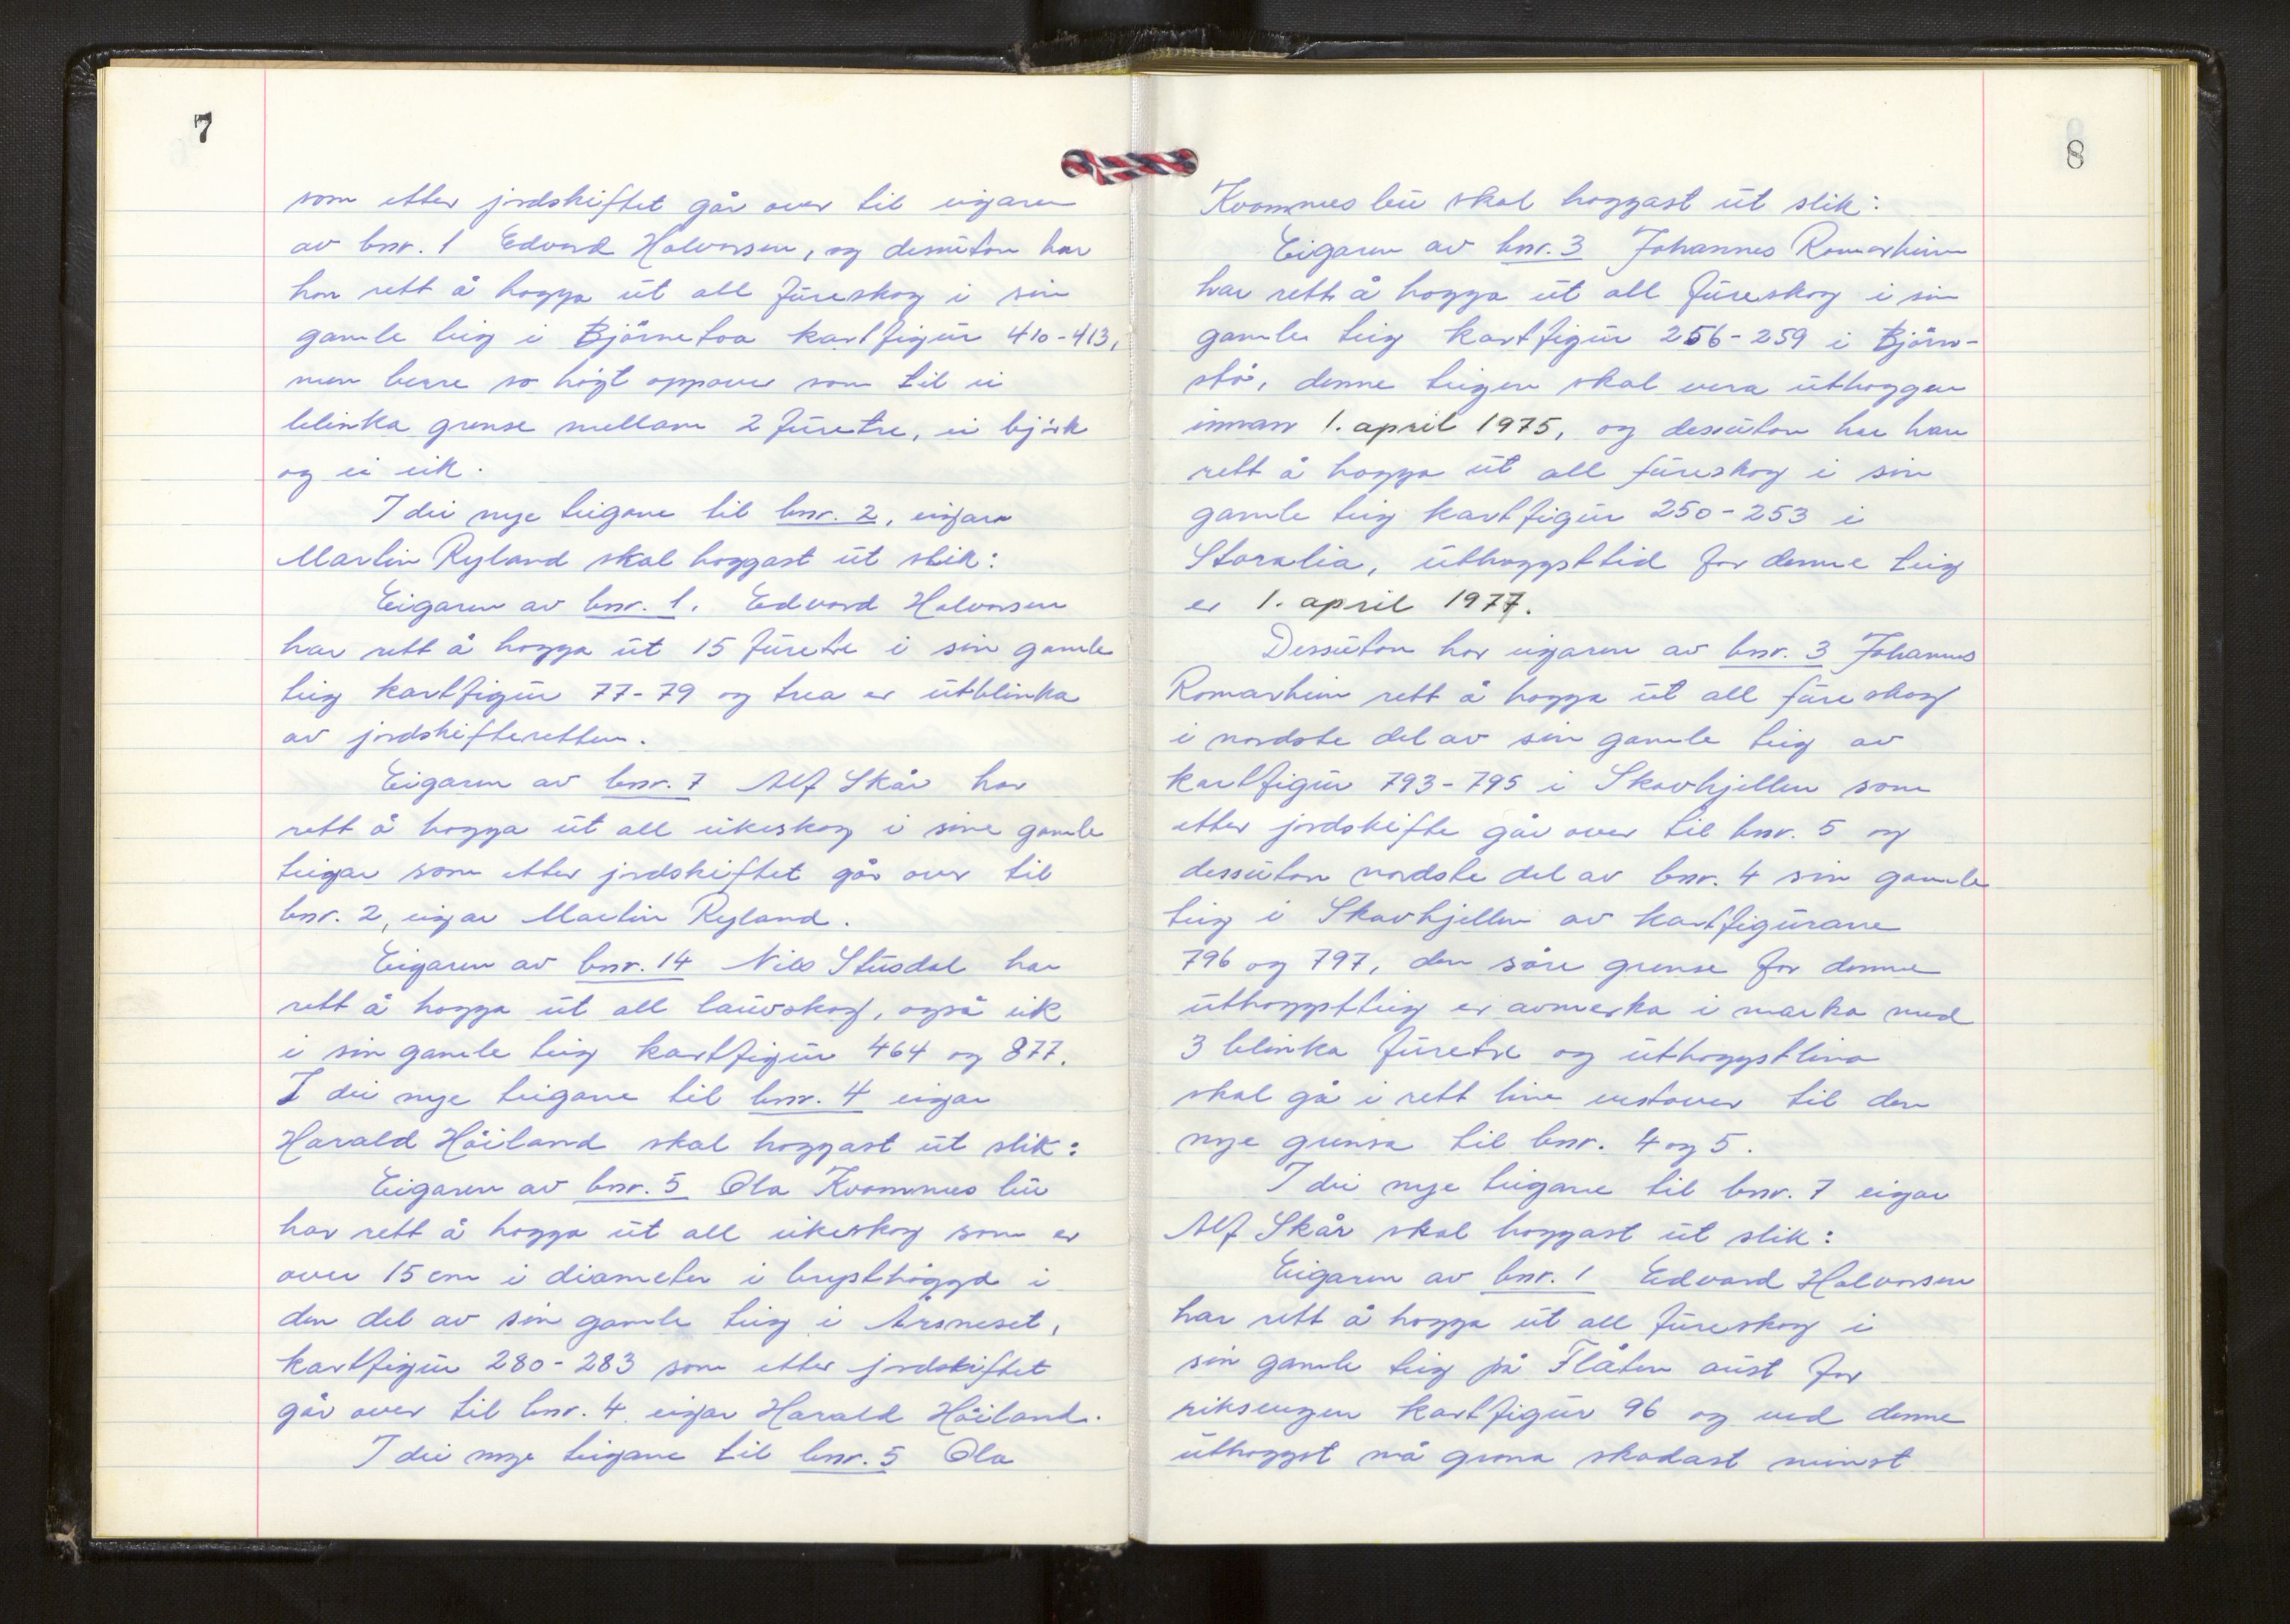 7
som etter jordskiftet går over til eigaren
av bnr. 1 Edvard Halvorsen, og dessutan har
han rett å hogga ut all fureskog i sin
gamle teig i Björnetoa kartfigur 410-413,
men berre so högt oppover som til ei
blinka grense mellom 2 furetre, ei björk
og ei eik.
I dei nye teigane til bnr. 2, eigar
Martin Ryland skal hoggast ut slik:
Eigaren av bnr. 1. Edvard Halvorsen
har rett å hogga ut 15 furetre i sin gamle
teig kartfigur 77-79 og trea er utblinka
av jordskifteretten.
Eigaren av bnr. 7 Alf Skår har
rett å hogga ut all eikeskog i sine gamle
teigar som etter jordskiftet går over til
bnr. 2, eigar Martin Ryland.
Eigaren av bnr. 14 Nils Stusdal har
rett å hogga ut all lauvskog, også eik
i sin gamle teig kartfigur 464 og 877.
I dei nye teigane til bnr. 4 eigar
Harald Höiland skal hoggast ut slik:
Eigaren av bnr. 5 Ola Kvamnes lii
har rett å hogga ut all eikeskog som er
over 15 cm i diameter i brysthöggd i
den del av sin gamle teig i Årsneset,
kartfigur 280-283 som etter jordskiftet
går over til bnr. 4 eigar Harald Höiland.
I dei nye teigane til bnr. 5 Ola
8
Kvamnes lii skal hoggast ut slik:
Eigaren av bnr. 3 Johannes Romarheim
har rett å hogga ut all fureskog i sin
gamle teig kartfigur 256-259 i Björn-
stö, denne teigen skal vera uthoggen
innan 1. april 1975, og dessutan har han
rett å hogga ut all fureskog i sin
gamle teig kartfigur 250-253 i
Storalia, uthoggsttid for denne teig
er 1. april 1977.
Dessutan har eigaren av bnr. 3 Johannes
Romarheim rett å hogga ut all fureskog
i nordste del av sin gamle teig av
kartfigur 793-795 i Skorhjellen som
etter jordskifte går over til bnr. 5 og
dessutan nordste del av bnr. 4 sin gamle
teig i Skorhjellen av kartfigurane
796 og 797, den söre grense for denne
uthoggstteig er avmerka i marka med
3 blinka furetre og uthoggstlina
skal gå i rett line vestover til den
nye grensa til bnr. 4 og 5.
I dei nye teigane til bnr. 7 eigar
Alf Skår skal hoggast ut slik:
Eigaren av bnr. 1 Edvard Halvorsen
har rett å hogga ut all fureskog i
sin gamle teig på Flåten aust for
riksvegen kartfigur 96 og ved denne
uthoggst må grona skadast minst